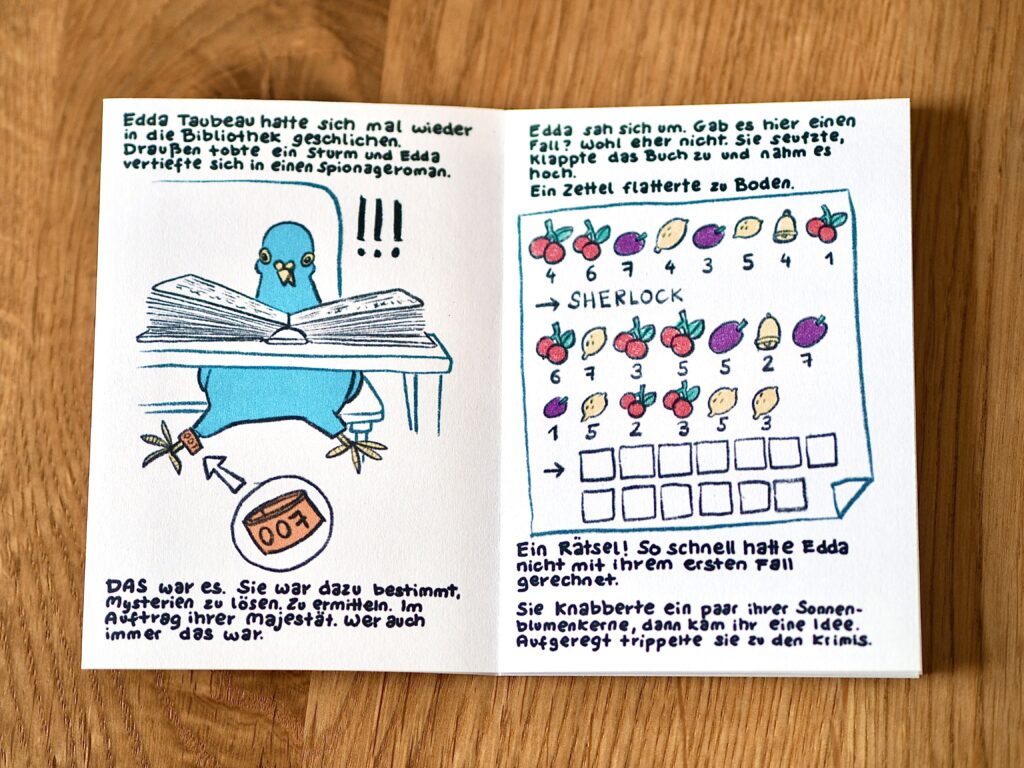 Edda Taubeau hatte sich mal wieder
in die Bibliothek geschlichen.
Draußen tobte ein Sturm und Edda
vertiefte sich in einen Spionageroman.
!!!
007
007
DAS war es. Sie war dazu bestimmt,
Mysterien zu lösen. Zu ermitteln. Im
Auftrag ihrer Majestät. Wer auch
immer das war.
Edda sah sich um. Gab es hier einen
Fall? Wohl eher nicht. Sie seufzte,
klappte das Buch zu und nahm es
hoch.
Ein Zettel flatterte zu Boden.
4 6 7 4 3 5 4 1
→ SHERLOCK
6 7 3 5 5 2 7
1 5 2 3 5 3
→
Ein Rätsel! So schnell hatte Edda
nicht mit ihrem ersten Fall
gerechnet.
Sie knabberte ein paar ihrer Sonnen-
blumenkerne, dann kam ihr eine Idee.
Aufgeregt trippelte sie zu den Krimis.